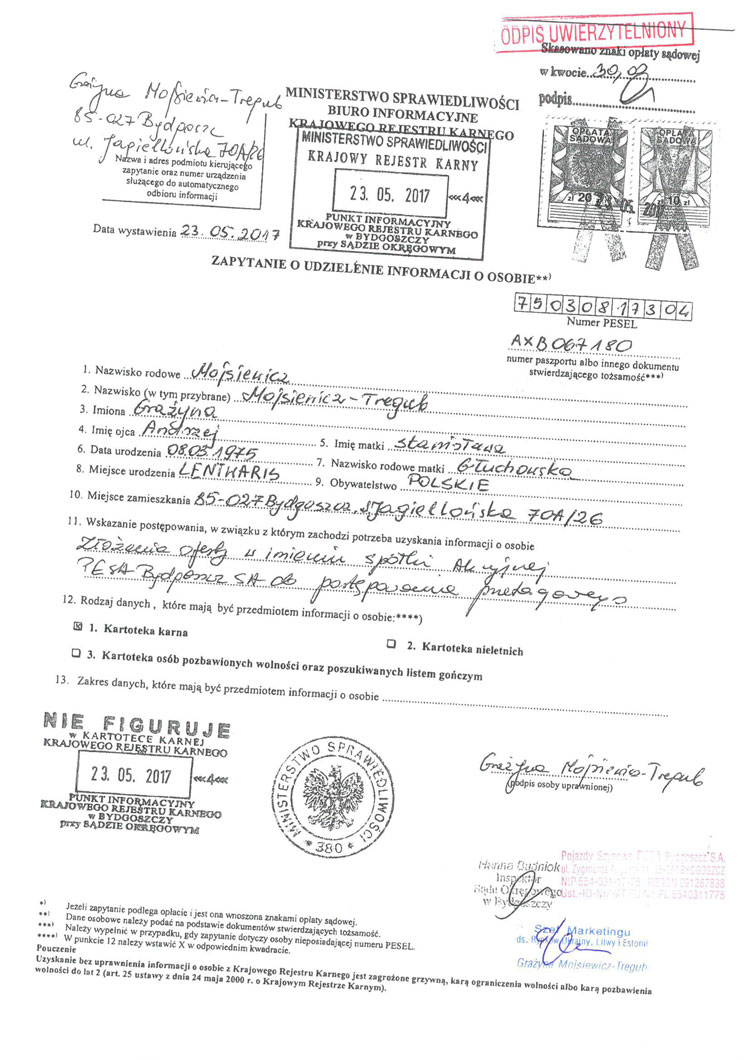 ODPIS UWIERZYTELNIONY
Skasowano znaki opłaty sądowej
w kwocie 30,00
podpis
Grażyna Mojsiewicz-Tregub
85-027 Bydgoszcz
ul. Jagiellońska 70A/26
Nazwa i adres podmiotu kierującego
zapytanie oraz numer urządzenia
służącego do automatycznego
odbioru informacji
MINISTERSTWO SPRAWIEDLIWOŚCI
BIURO INFORMACYJNE
KRAJOWEGO REJESTRU KARNEGO
MINISTERSTWO SPRAWIEDLIWOŚCI
KRAJOWY REJESTR KARNY
23. 05. 2017 «««4«««
PUNKT INFORMACYJNY
KRAJOWEGO REJESTRU KARNEGO
w BYDGOSZCZY
przy SĄDZIE OKRĘGOWYM
OPŁATA SĄDOWA zł 20
OPŁATA SĄDOWA 10 zł
Data wystawienia 23.05.2017
ZAPYTANIE O UDZIELENIE INFORMACJI O OSOBIE**)
75030817304
Numer PESEL
AXB067180
numer paszportu albo innego dokumentu
stwierdzającego tożsamość***)
1. Nazwisko rodowe Mojsiewicz
2. Nazwisko (w tym przybrane) Mojsiewicz-Tregub
3. Imiona Grażyna
4. Imię ojca Andrzej
5. Imię matki Stanisława
6. Data urodzenia 08.03.1975
7. Nazwisko rodowe matki Głuchowska
8. Miejsce urodzenia LENTWARIS
9. Obywatelstwo POLSKIE
10. Miejsce zamieszkania 85-027 Bydgoszcz, Jagiellońska 70A/26
11. Wskazanie postępowania, w związku z którym zachodzi potrzeba uzyskania informacji o osobie
Złożenia oferty w imieniu spółki Akcyjnej
PESA Bydgoszcz SA do postępowania przetargowego
12. Rodzaj danych, które mają być przedmiotem informacji o osobie:****)
☒ 1. Kartoteka karna
☐ 2. Kartoteka nieletnich
☐ 3. Kartoteka osób pozbawionych wolności oraz poszukiwanych listem gończym
13. Zakres danych, które mają być przedmiotem informacji o osobie
NIE FIGURUJE
w KARTOTECE KARNEJ
KRAJOWEGO REJESTRU KARNEGO
23. 05. 2017 «««4«««
PUNKT INFORMACYJNY
KRAJOWEGO REJESTRU KARNEGO
w BYDGOSZCZY
przy SĄDZIE OKRĘGOWYM
MINISTERSTWO SPRAWIEDLIWOŚCI
* 380 *
Grażyna Mojsiewicz-Tregub
(podpis osoby uprawnionej)
Hanna Budniok
Inspektor
Sądu Okręgowego
w Bydgoszczy
Pojazdy Szynowe PESA Bydgoszcz S.A.
ul. Zygmunta Augusta
NIP 554-031-17-75
Szef Marketingu
ds. Ukrainy, Litwy i Estonii
Grażyna Mojsiewicz-Tregub
*) Jeżeli zapytanie podlega opłacie i jest ona wnoszona znakami opłaty sądowej.
**) Dane osobowe należy podać na podstawie dokumentów stwierdzających tożsamość.
***) Należy wypełnić w przypadku, gdy zapytanie dotyczy osoby nieposiadającej numeru PESEL.
****) W punkcie 12 należy wstawić X w odpowiednim kwadracie.
Pouczenie
Uzyskanie bez uprawnienia informacji o osobie z Krajowego Rejestru Karnego jest zagrożone grzywną, karą ograniczenia wolności albo karą pozbawienia
wolności do lat 2 (art. 25 ustawy z dnia 24 maja 2000 r. o Krajowym Rejestrze Karnym).